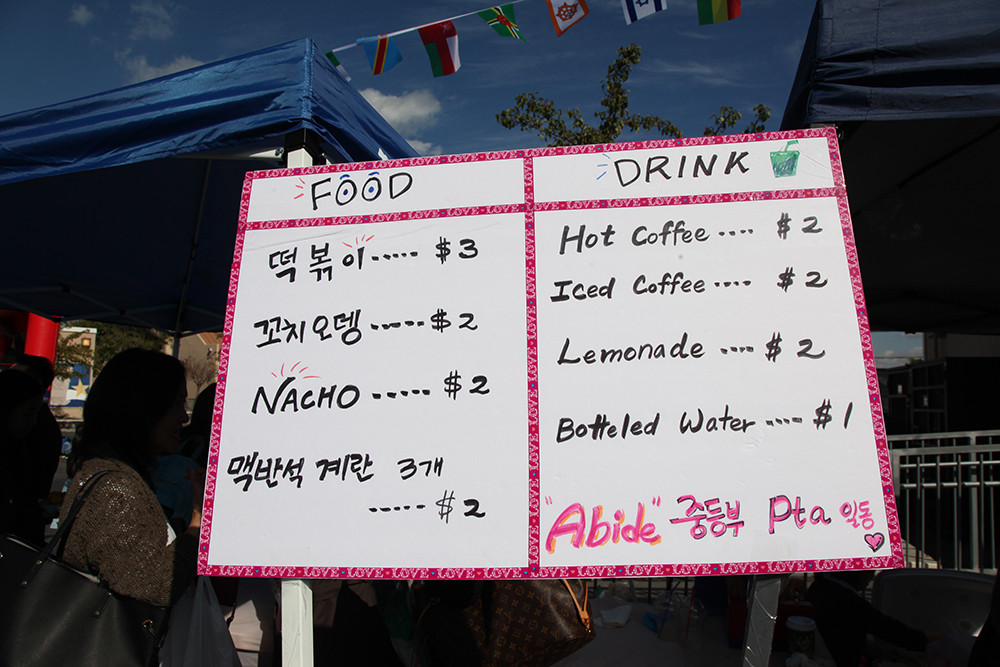 FOOD
떡볶이..... $3
꼬치오뎅 ......$2
NACHO ..... $2
맥반석 계란 3개
..... $2
DRINK
Hot Coffee .... $2
Iced Coffee .... $2
Lemonade .... $2
Botteled Water .... $1
"Abide" 중등부 Pta 일동